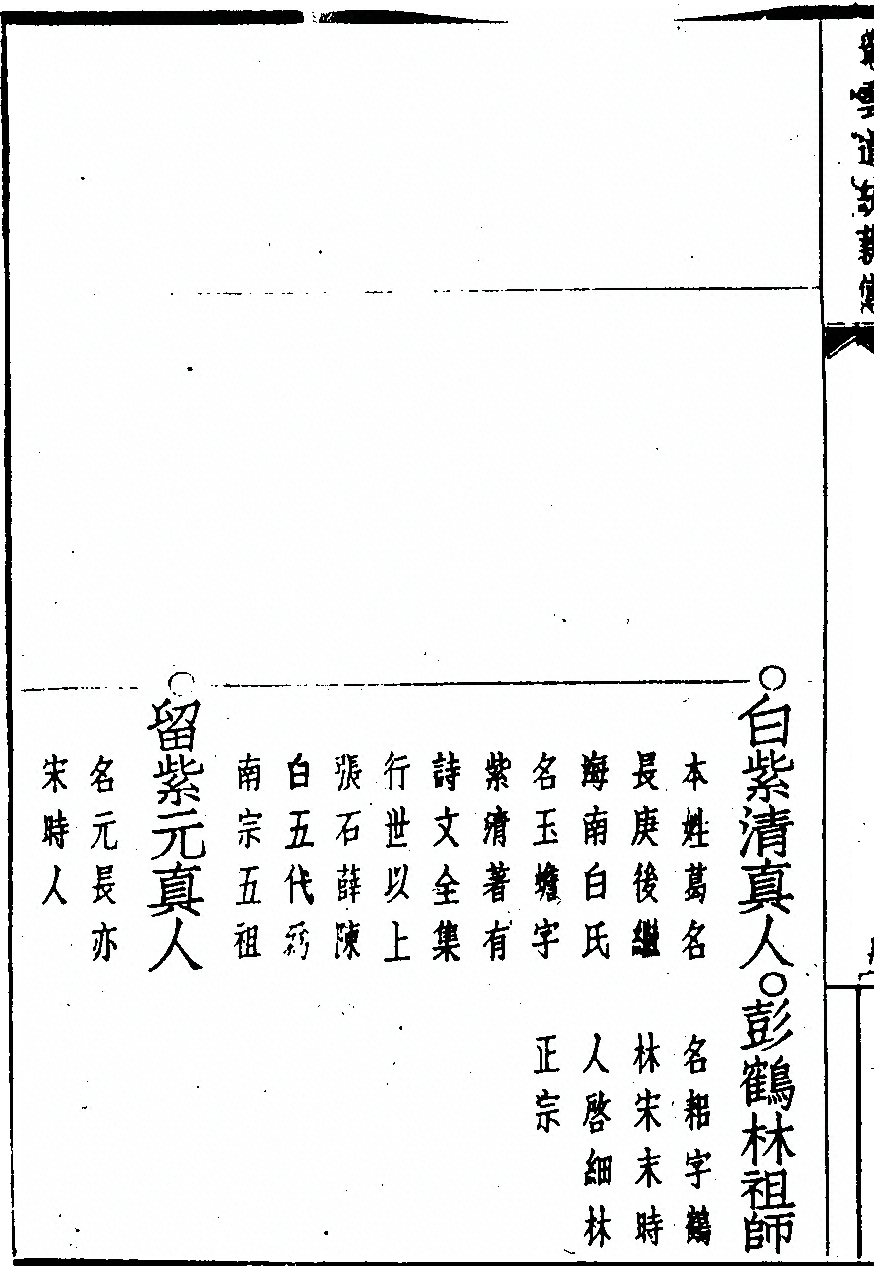 白紫清真人
本姓葛名
長庚後繼
海南白氏
名玉蟾字
紫清著有
詩文全集
行世以上
張石薛陳
白五代爲
南宗五祖
彭鶴林祖師
名耜字鶴
林宋末時
人啓細林
正宗
留紫元真人
名元長亦
宋時人